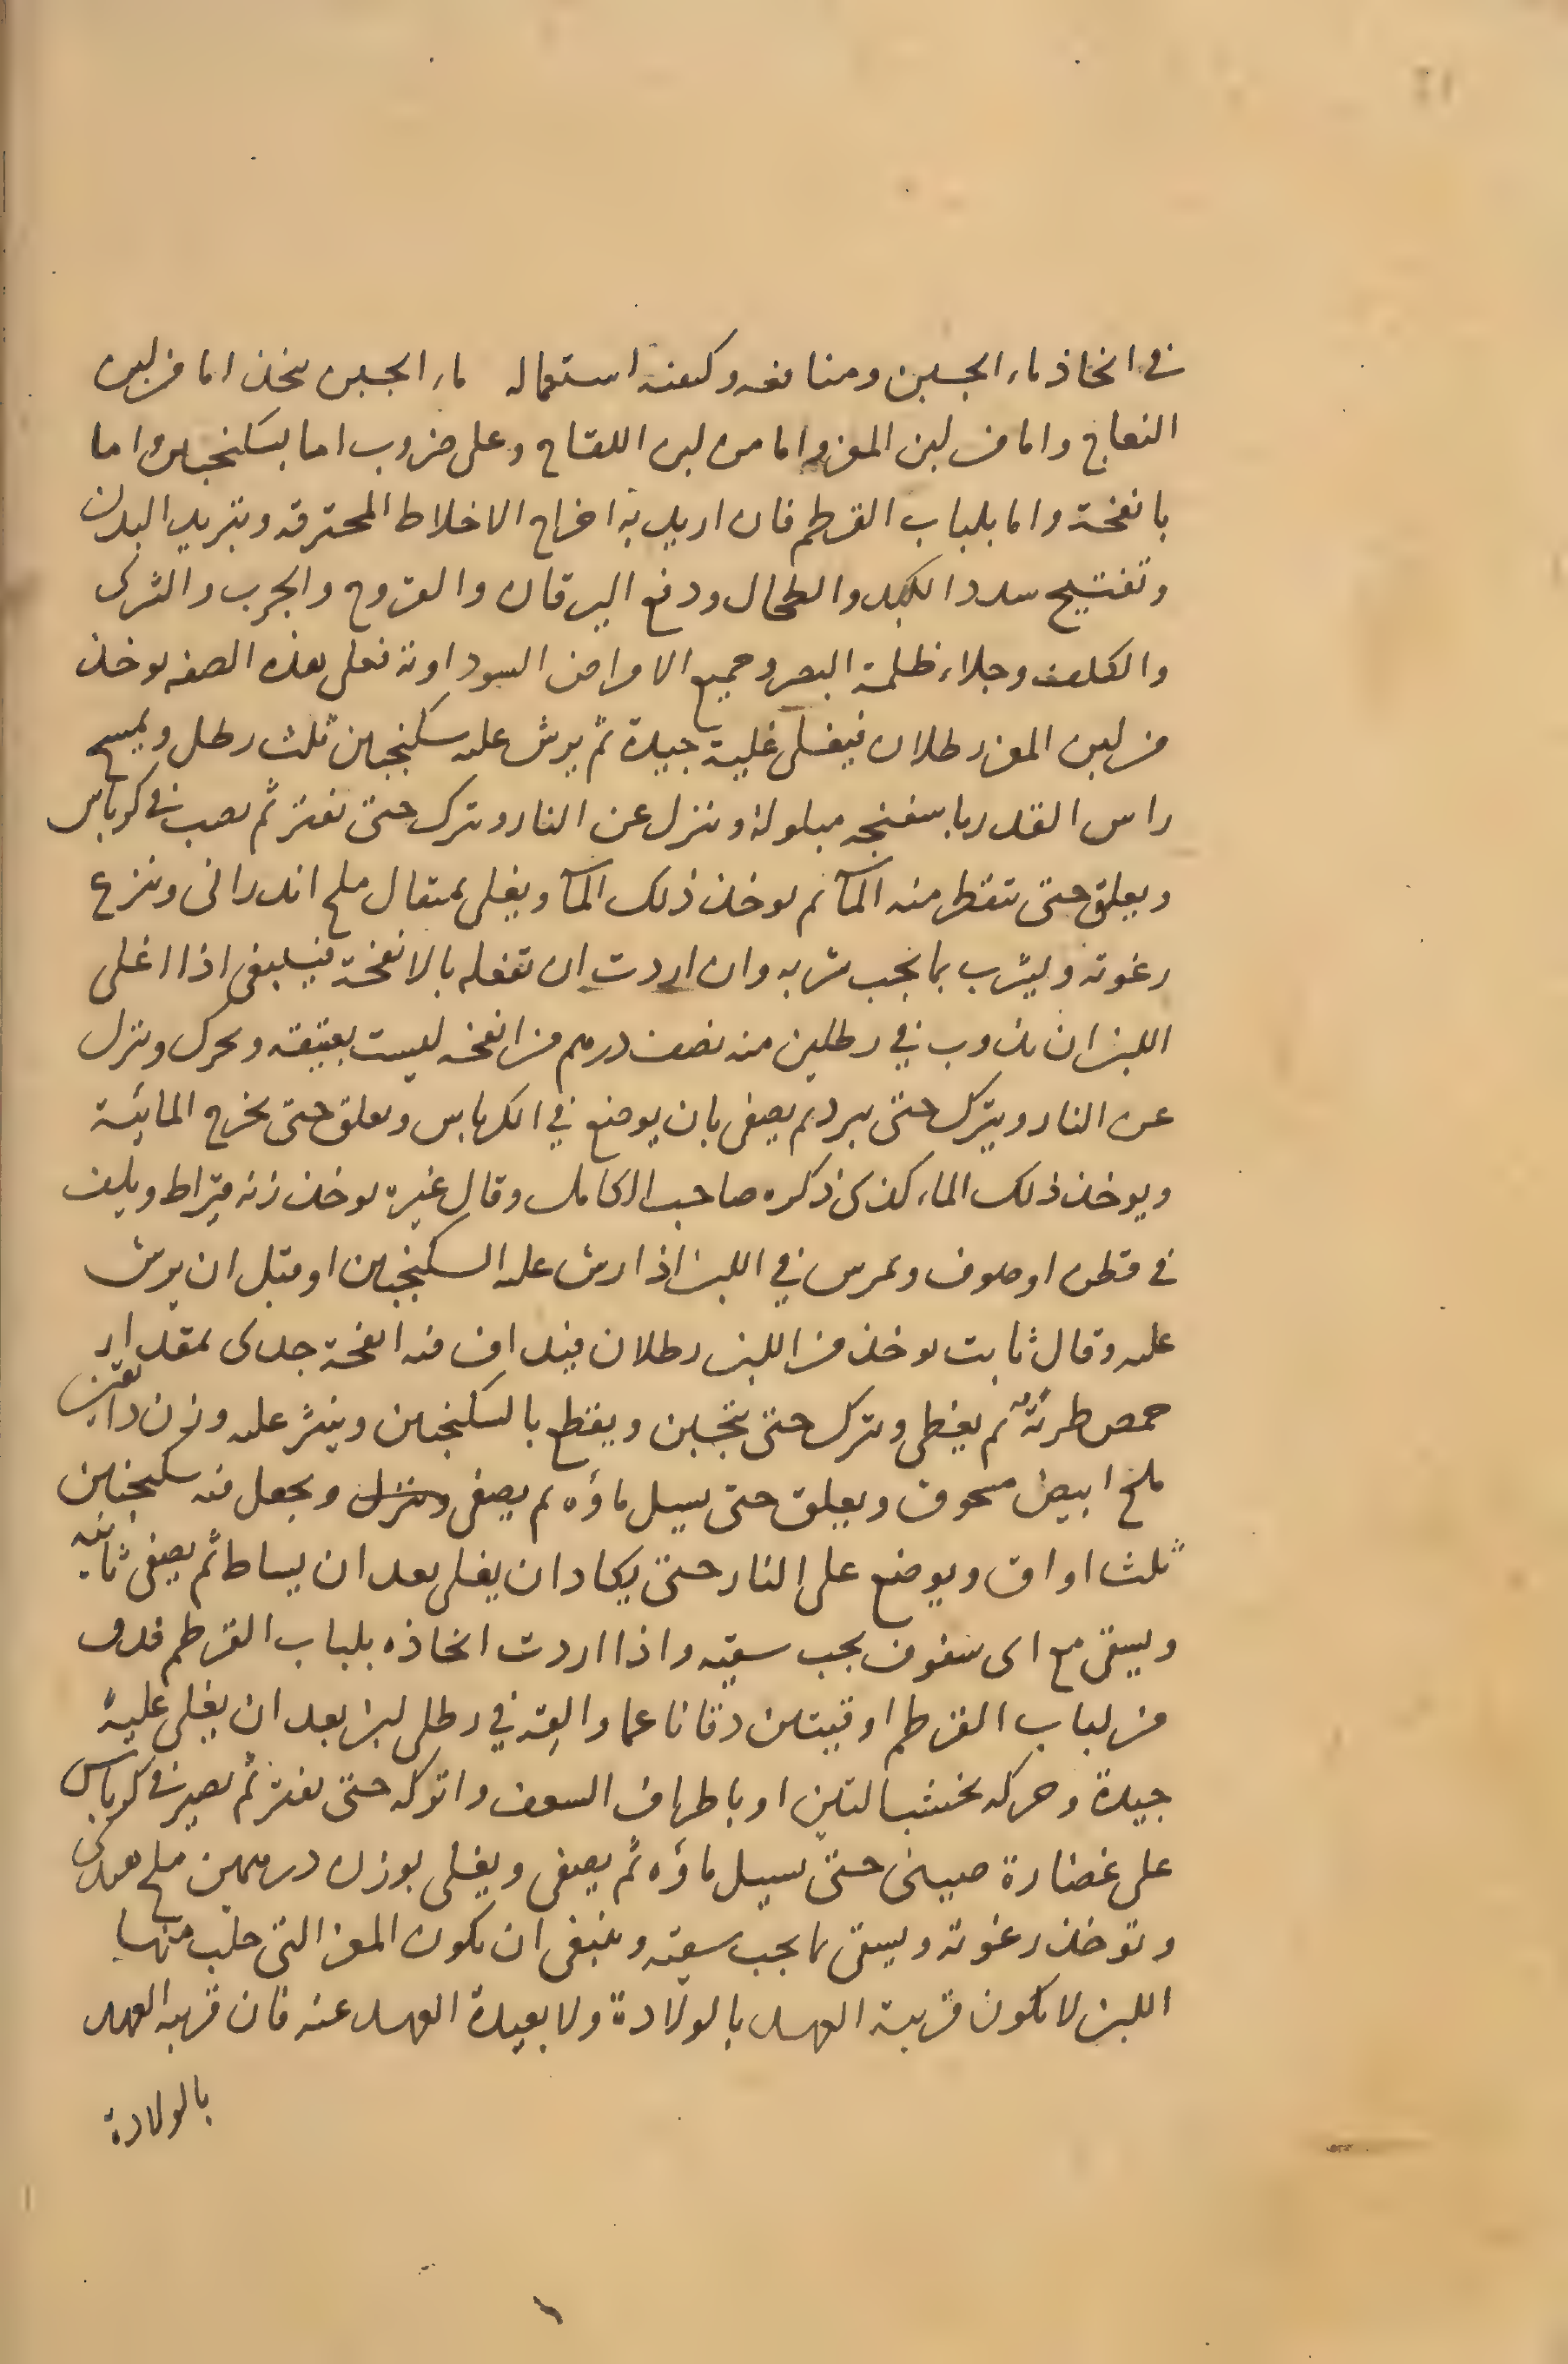 في اتخاذ ماء الجبن ومنافعه وكيفية استعماله ماء الجبن يتخذ اما من لبن
النعاج واما من لبن المعز واما من لبن اللقاح وعلى ضروب اما بسكنجبين واما
بانفحة واما بلباب القرطم فان اريد به اخراج الاخلاط المحترقه وتبريد البدن
وتفتيح سدد الكبد والطحال ودفع اليرقان والقروح والجرب والشرى
والكلف وجلاء ظلمة البصر وجميع الامراض السوداوية فعلى هذه الصفه يوخذ
من لبن المعز رطلان فيغلى غلية جيدة ثم يرش عليه سكنجبين ثلث رطل ويمسح
راس القدر باسفنجه مبلولة وينزل عن النار ويترك حتى يفتر ثم يصب في كرباس
ويعلق حتى تقطر منه المآ ثم يوخذ ذلك المآ ويغلى بمثقال ملح اندرانى وينزع
رغوته ويشرب بما يجب شربه وان اردت ان تفعله بالانفحة فينبغى اذا اغلى
اللبن ان يذوب في رطلين منه نصف درهم من انفحه ليست بعتيقه ويحرك وينزل
عن النار ويترك حتى يبرد ثم يصفى بان يوضع في الكرباس ويعلق حتى يخرج المائية
ويوخذ ذلك الماء كذى ذكره صاحب الكامل وقال غيره يوخذ زنه قيراط ويلف
في قطن او صوف ويمرس في اللبن اذا رش عليه السكنجبين او قبل ان يرش
عليه وقال ثابت يوخذ من اللبن رطلان فيداف فيه انفحة جدى بمقدار
حمص طرية ثم يغطى ويترك حتى يتجبن ويقطع بالسكنجبين وينثر عليه وزن دانقين
ملح ابيض مسحوق ويعلق حتى يسيل ماؤه ثم يصفى وينزل ويجعل فيه سكنجبين
ثلث اواق ويوضع على النار حتى يكاد ان يغلى بعد ان يساط ثم يصفى ثانيه
ويسقى مع اى سفوف يجب سقيه واذا اردت اتخاذه بلباب القرطم فدق
من لباب القرطم اوقيتين دقا ناعما والقه في رطلى لبن بعد ان يغلى غلية
جيدة وحركه بخشب التين او باطراف السعف واتركه حتى يفتر ثم يصير في كرباس
على غضارة صينى حتى يسيل ماؤه ثم يصفى ويغلى بوزن درهمين ملح هندى
وتوخذ رغوته ويسقى بما يجب سقيه وينبغى ان يكون المعز التى حلب منها
اللبن لا يكون قريبة العهد بالولادة ولا بعيدة العهد عنه فان قريبه العهد
بالولادة